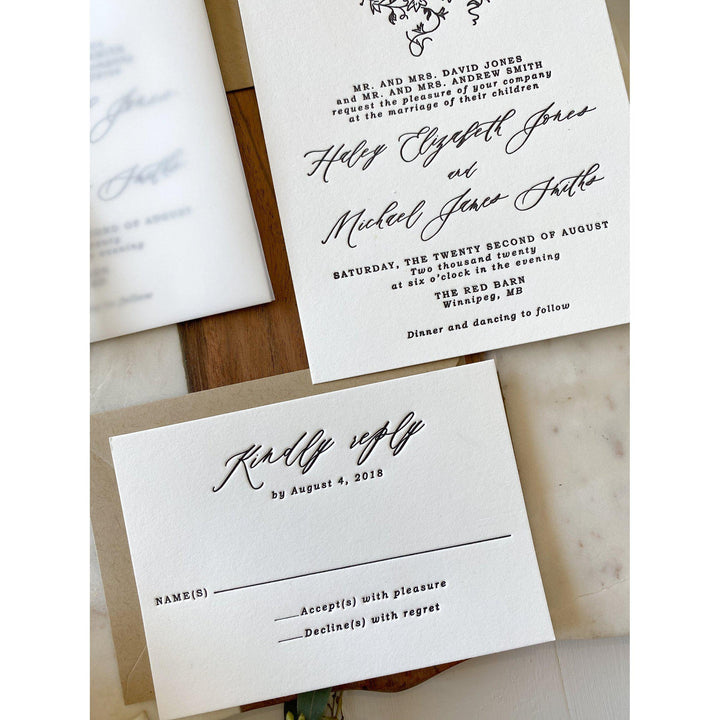 MR. AND MRS. DAVID JONES
and MR. AND MRS. ANDREW SMITH
request the pleasure of your company
at the marriage of their children
Haley Elizabeth Jones
and
Michael James Smiths
SATURDAY, THE TWENTY SECOND OF AUGUST
Two thousand twenty
at six o'clock in the evening
THE RED BARN
Winnipeg, MB
Dinner and dancing to follow
Jones
Smiths
OF AUGUST
evening
follow
Kindly reply
by August 4, 2018
NAME(S)
___Accept(s) with pleasure
___Decline(s) with regret